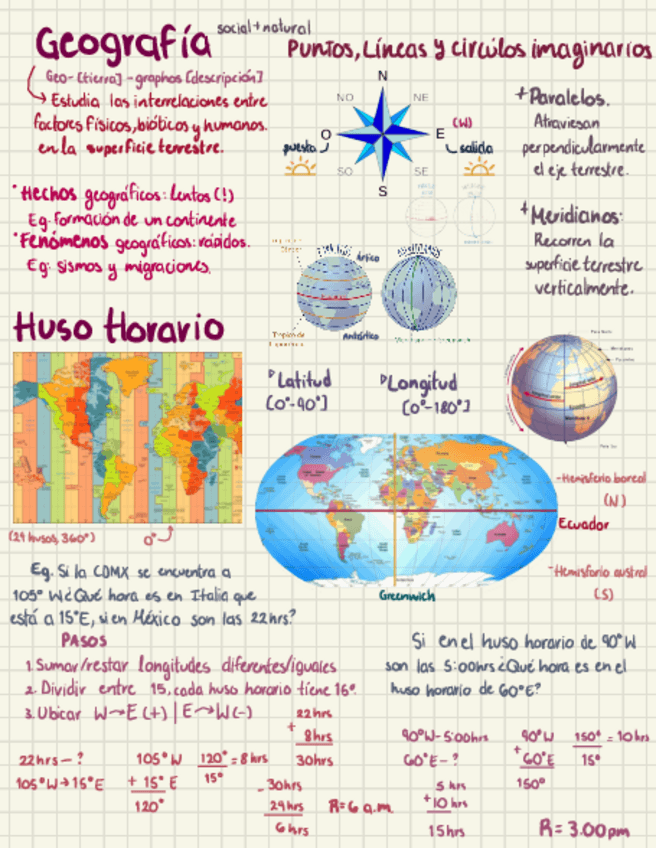 Geografía
social + natural
Geo- [tierra] - graphos [descripción]
Estudia las interrelaciones entre
factores físicos, bióticos y humanos.
en la superficie terrestre.
Hechos geográficos: lentos (!)
Eg. formación de un continente
Fenómenos geográficos: rápidos.
Eg: sismos y migraciones.
Puntos, Líneas y circulos imaginarios
N
NO
NE
O
E
(W)
puesta
salida
SO
SE
S
+ Paralelos.
Atraviesan
perpendicularmente
el eje terrestre.
+ Meridianos:
Recorren la
superficie terrestre
verticalmente.
Ártico
Antártico
Huso Horario
(24 husos, 360°)
0°
Latitud
[0°-90°]
Longitud
[0°-180°]
- Hemisferio boreal
(N)
Ecuador
- Hemisferio austral
(S)
Greenwich
Eg. Si la CDMX se encuentra a
105° W ¿Qué hora es en Italia que
está a 15°E, si en México son las 22hrs?
PASOS
1. Sumar/restar longitudes diferentes/iguales
2. Dividir entre 15, cada huso horario tiene 16°.
3. Ubicar W→E (+) | E→W (-)
22hrs - ?
105°W → 15°E
105° W
+ 15° E
120°
120° = 8 hrs
15°
22 hrs
+ 8 hrs
30hrs
- 30hrs
24 hrs
6 hrs
R= 6 a.m.
Si en el huso horario de 90°W
son las 5:00hrs ¿Qué hora es en el
huso horario de 60°E?
90°W - 5:00hrs
60°E - ?
90° W
+ 60°E
150°
150° = 10 hrs
15°
5 hrs
+10 hrs
15hrs
R= 3:00pm